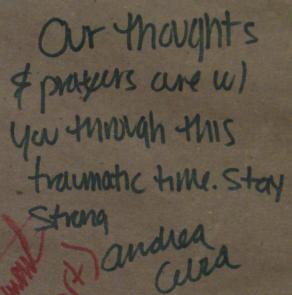 Our thoughts
& prayers are w/
you through this
traumatic time. Stay
Strong
andrea